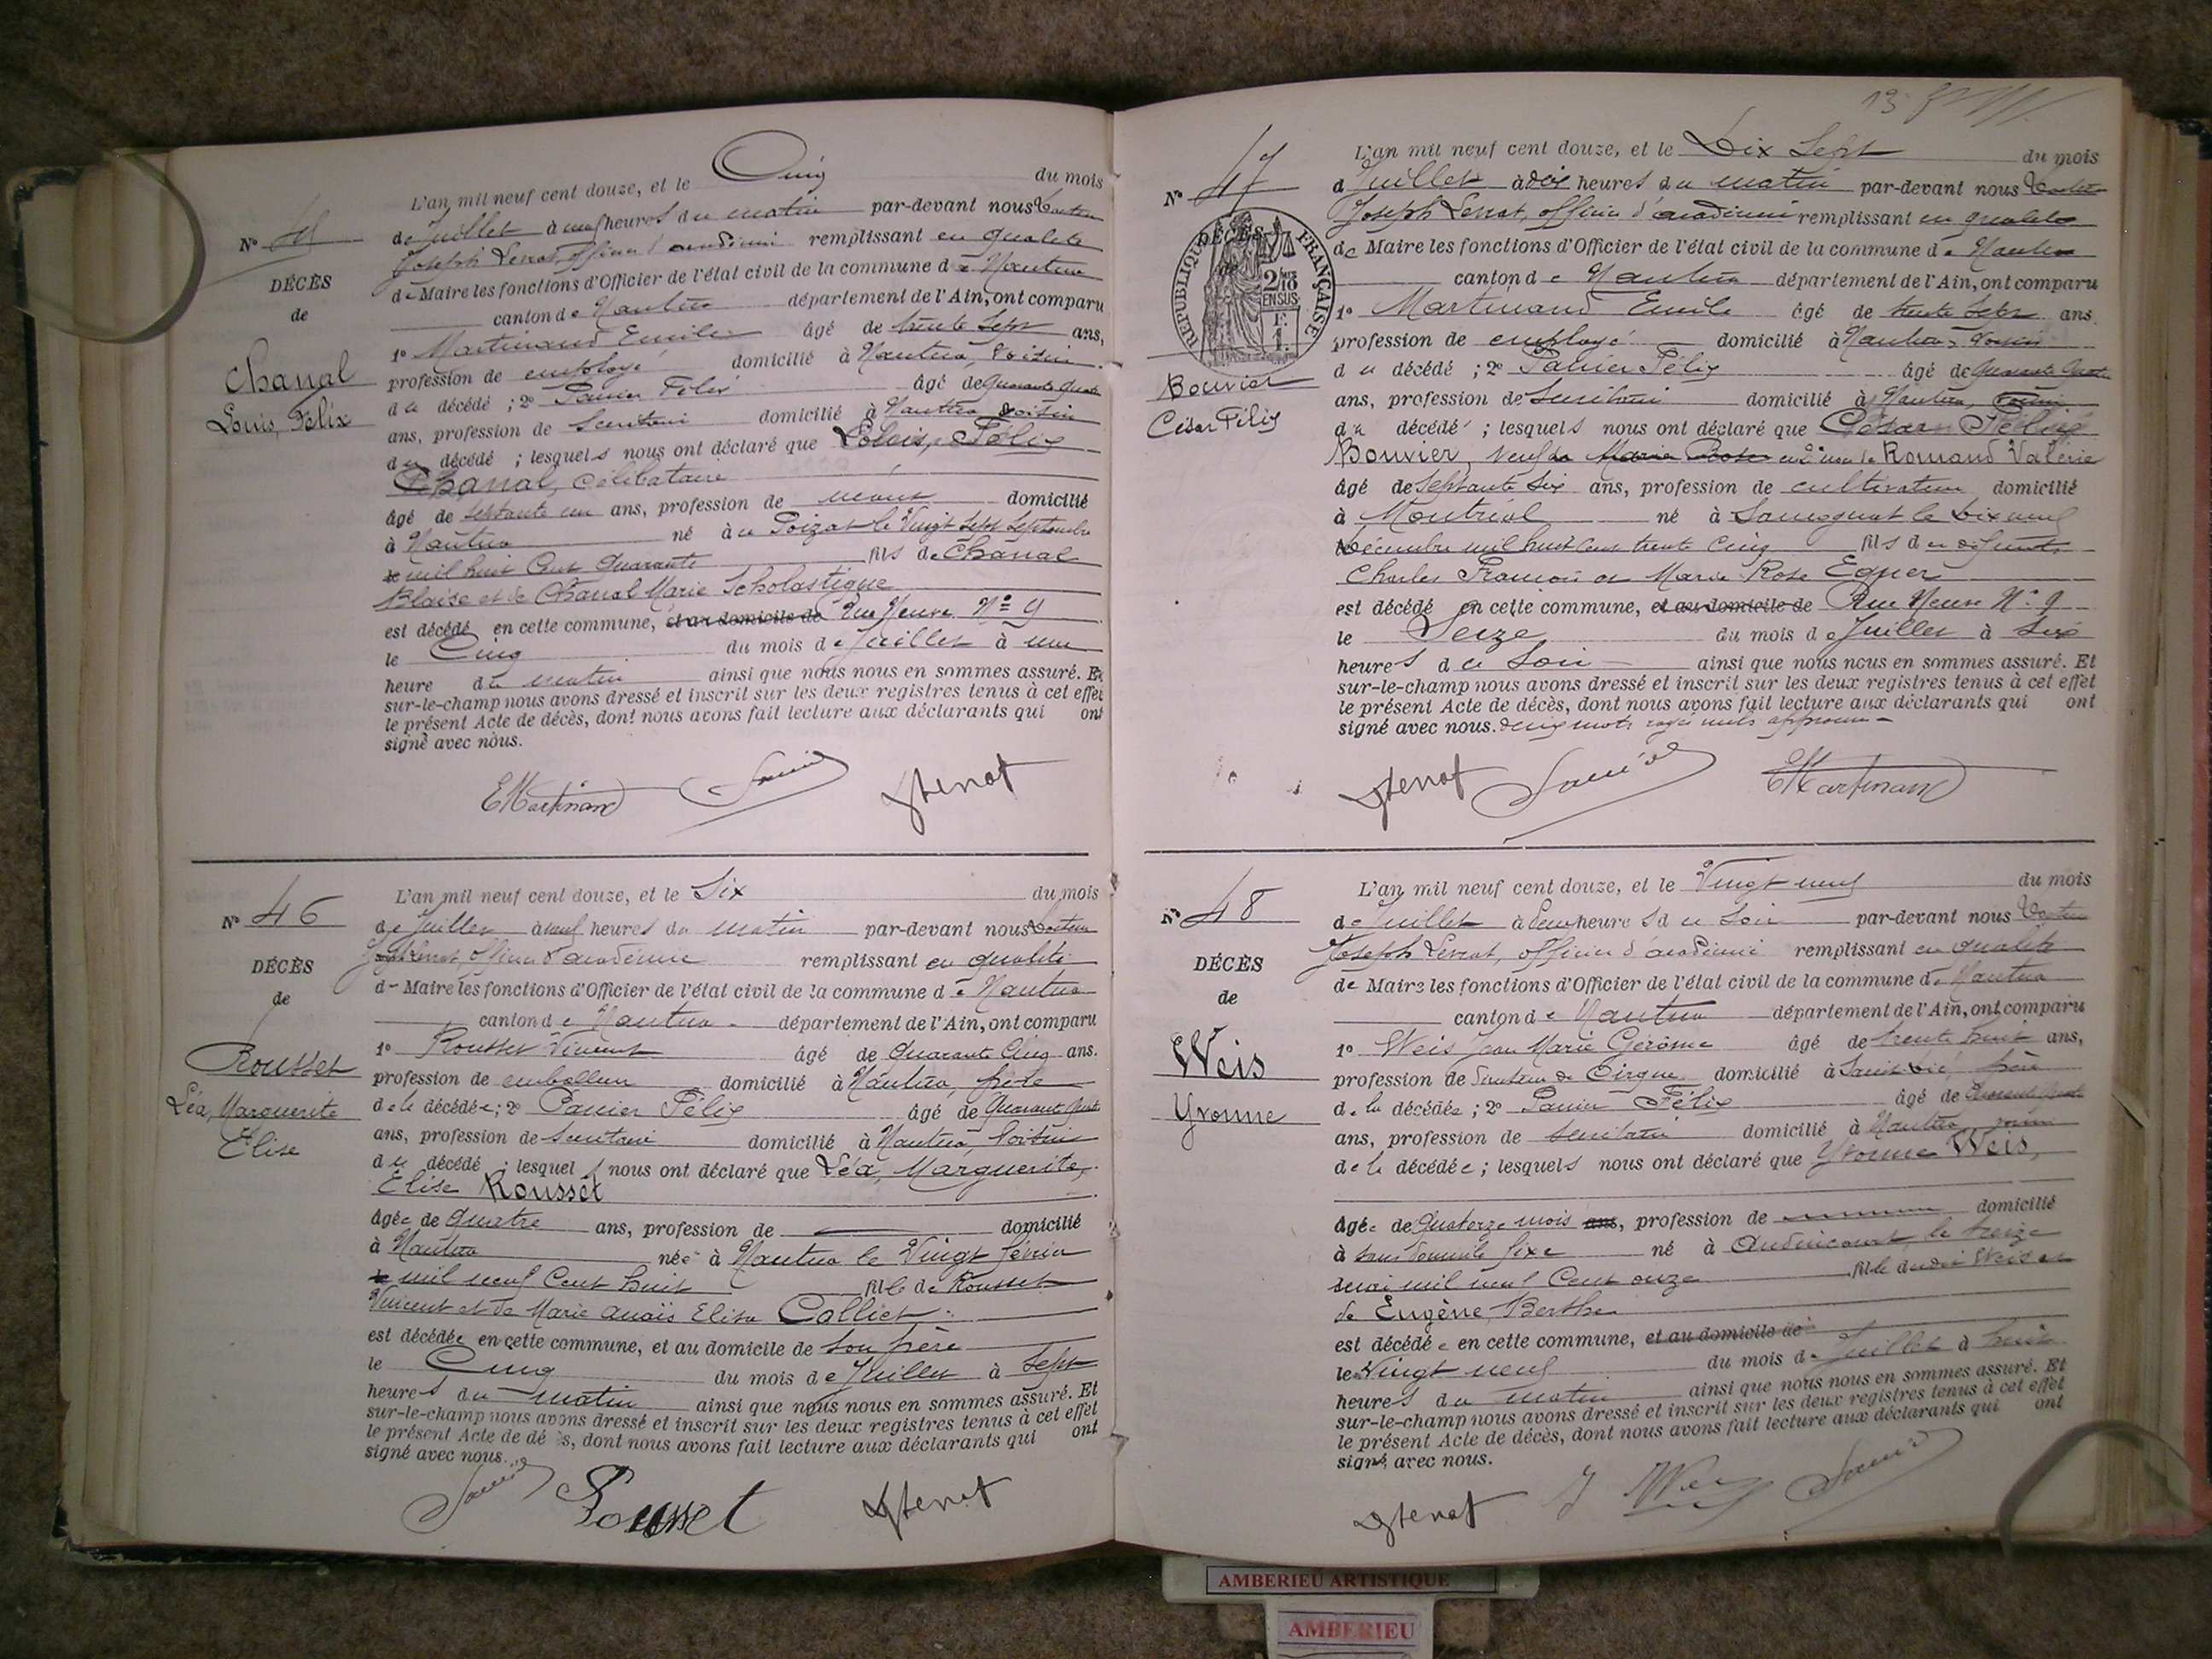 L'an mil neuf cent douze, et le Cinq du mois
de Juillet à neuf heures du matin par-devant nous Docteur
Joseph Levrat, officier d'académie remplissant en qualité
de Maire les fonctions d'Officier de l'état civil de la commune de Nantua
canton de Nantua département de l'Ain, ont comparu
1° Martinand Emile âgé de trente sept ans,
profession de employé domicilié à Nantua, voisin
du décédé ; 2° Panier Félix âgé de quarante quatre
ans, profession de domicilié à Nantua voisin
du décédé ; lesquels nous ont déclaré que Louis, Félix
Chanal, célibataire
âgé de septante un ans, profession de néant domicilié
à Nantua né à u Poizat le Vingt sept Septembre
mil huit Cent Quarante fils de Chanal
Blaise et de Chanal Marie Scholastique
est décédé en cette commune, et au domicile de Rue Neuve N° 9
le Cinq du mois de Juillet à une
heure du matin ainsi que nous nous en sommes assuré. Et
sur-le-champ nous avons dressé et inscrit sur les deux registres tenus à cet effet
le présent Acte de décès, dont nous avons fait lecture aux déclarants qui ont
signé avec nous.
N°
DÉCÈS
de
Chanal
Louis, Félix
EMartinand
N° 46
DÉCÈS
de
Rousset
Léa, Marguerite
Elise
L'an mil neuf cent douze, et le Six du mois
de Juillet à neuf heures du matin par-devant nous Docteur
Joseph Levrat, officier d'académie remplissant en qualité
de Maire les fonctions d'Officier de l'état civil de la commune de Nantua
canton de Nantua département de l'Ain, ont comparu
1° Rousset Vincent âgé de Quarante Cinq ans.
profession de emballeur domicilié à Nantua, père
de la décédée ; 2° Panier Félix âgé de Quarante quatre
ans, profession de domicilié à Nantua, voisin
du décédé ; lesquels nous ont déclaré que Léa, Marguerite,
Elise Rousset
âgée de quatre ans, profession de domicilié
à Nantua née à Nantua le Vingt février
mil neuf Cent huit fille de Rousset
Vincent et de Marie Anaïs Elisa Colliet
est décédée en cette commune, et au domicile de son père
le Cinq du mois de Juillet à Sept
heures du matin ainsi que nous nous en sommes assuré. Et
sur-le-champ nous avons dressé et inscrit sur les deux registres tenus à cet effet
le présent Acte de décès, dont nous avons fait lecture aux déclarants qui ont
signé avec nous.
Rousset
N° 47
DÉCÈS
RÉPUBLIQUE FRANÇAISE
2/10 EN SUS
Bouvier
César Félix
L'an mil neuf cent douze, et le Dix Sept du mois
d Juillet à dix heures du matin par-devant nous Docteur
Joseph Levrat, officier d'académie remplissant en qualité
de Maire les fonctions d'Officier de l'état civil de la commune de Nantua
canton de Nantua département de l'Ain, ont comparu
1° Martinand Emile âgé de trente sept ans
profession de employé domicilié à Nantua, voisin
du décédé ; 2° Panier Félix âgé de quarante quatre
ans, profession de domicilié à Nantua, voisin
du décédé ; lesquels nous ont déclaré que César Félix
Bouvier, veuf de Marie Rose en 2° de Romand Valérie
âgé de septante six ans, profession de cultivateur domicilié
à Montréal né à Samognat le Dix neuf
Décembre mil huit cent trente cinq fils de défunts
Charles François et Marie Rose
est décédé en cette commune, et au domicile de Rue Neuve N° 9
le Seize du mois de Juillet à Six
heures du Soir ainsi que nous nous en sommes assuré. Et
sur-le-champ nous avons dressé et inscrit sur les deux registres tenus à cet effet
le présent Acte de décès, dont nous avons fait lecture aux déclarants qui ont
signé avec nous. deux mots rayés nuls
EMartinand
N° 48
DÉCÈS
de
Weis
Yvonne
L'an mil neuf cent douze, et le Vingt neuf du mois
de Juillet à deux heures du Soir par-devant nous Docteur
Joseph Levrat, officier d'académie remplissant en qualité
de Maire les fonctions d'Officier de l'état civil de la commune de Nantua
canton de Nantua département de l'Ain, ont comparu
1° Weis Jean Marie Gérôme âgé de trente huit ans,
profession de Directeur de Cirque domicilié à Saint Dié, père
de la décédée ; 2° Panier Félix âgé de quarante quatre
ans, profession de domicilié à Nantua, voisin
de la décédée ; lesquels nous ont déclaré que Yvonne Weis,
âgée de Quatorze mois ans, profession de domicilié
à sans domicile fixe né à Audincourt, le treize
mai mil neuf Cent onze fille dudit Weis et
de Eugène Berthe
est décédée en cette commune, et au domicile de
le Vingt neuf du mois de Juillet à huit
heures du matin ainsi que nous nous en sommes assuré. Et
sur-le-champ nous avons dressé et inscrit sur les deux registres tenus à cet effet
le présent Acte de décès, dont nous avons fait lecture aux déclarants qui ont
signé avec nous.
AMBERIEU ARTISTIQUE
AMBERIEU